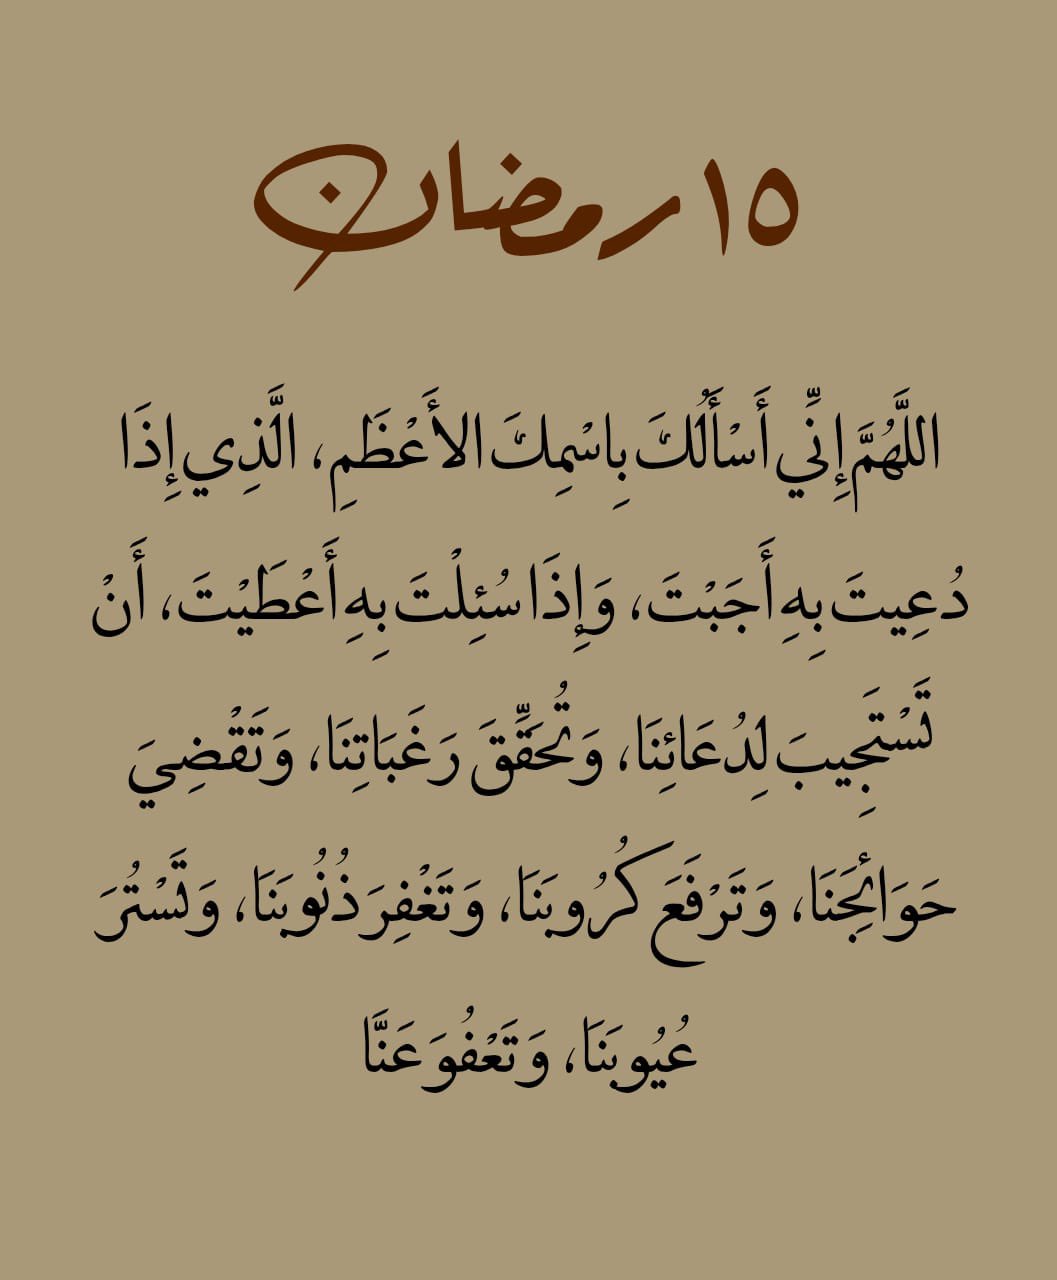 ١٥ رمضان
اللَّهُمَّ إِنِّي أَسْأَلُكَ بِاسْمِكَ الأَعْظَمِ، الَّذِي إِذَا
دُعِيتَ بِهِ أَجَبْتَ، وَإِذَا سُئِلْتَ بِهِ أَعْطَيْتَ، أَنْ
تَسْتَجِيبَ لِدُعَائِنَا، وَتُحَقِّقَ رَغَبَاتِنَا، وَتَقْضِيَ
حَوَائِجَنَا، وَتَرْفَعَ كُرُوبَنَا، وَتَغْفِرَ ذُنُوبَنَا، وَتَسْتُرَ
عُيُوبَنَا، وَتَعْفُوَ عَنَّا